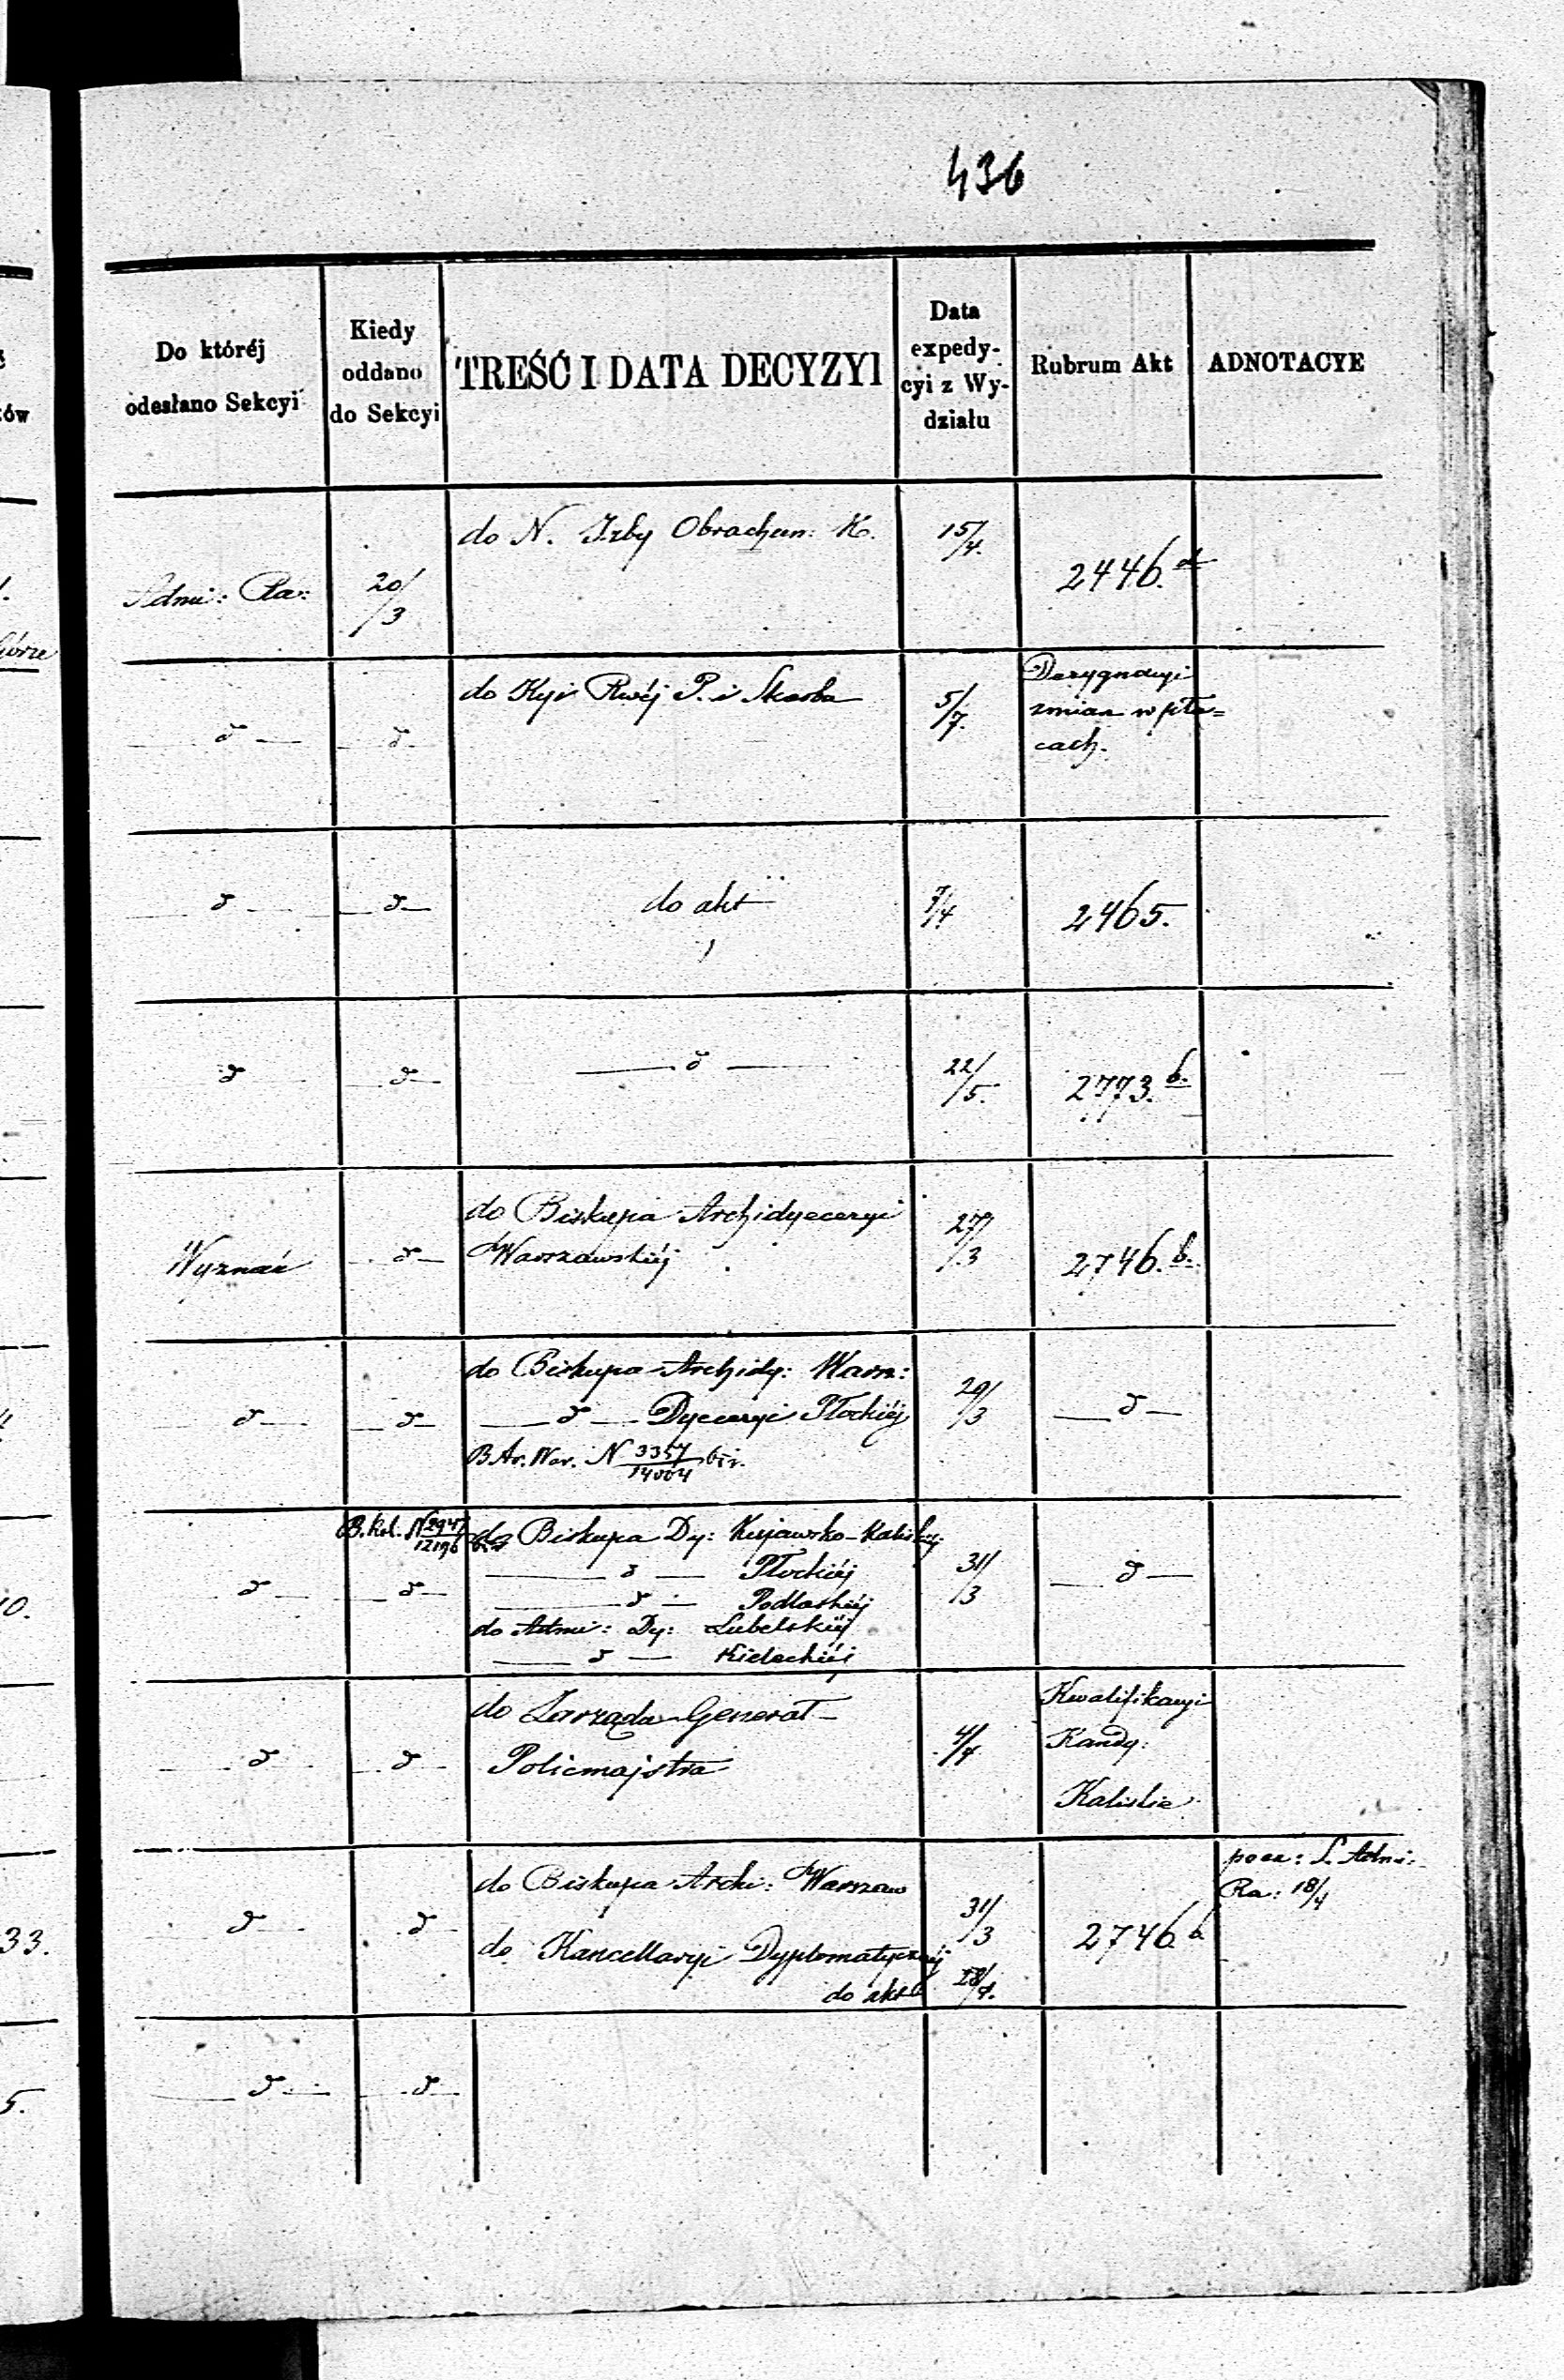 436
Do któréj
odesłano Sekcyi
Kiedy
oddano
do Sekcyi
TREŚĆ I DATA DECYZYI
Data
expedy-
cyi z Wy-
działu
Rubrum Akt
ADNOTACYE
Admi: Ra:
20/3
do N. Izby Obrachun: K.
15/4.
2446.d
d
d
do Kyi Rwéj P. i Skarbu
5/7.
Dezygnacyi
zmian w pła=
cach.
d
d
do akt
9/4
2465.
d
d
d
22/5.
2773.b.
Wyznań
d
do Biskupa Archidyecezyi
Warszawskiéj
27/3
2746.b.
d
d
do Biskupa Archidy: Warsz:
d Dyecezyi Płockiéj
B Ar. War. N 3357/14004 bir.
29/3
d
B. Kal. N 2947/12196
d
d
do Biskupa Dy: Kujawsko-Kaliskiéj
d Płockiéj
d Podlaskiéj
do Admi: Dy: Lubelskiéj
d Kieleckiéj
31/3
d
d
d
do Zarządu Generał-
Policmajstra
4/4
Kwalifikacyi
Kandy:
Kaliskie
d
d
do Biskupa Archi: Warszaw
31/3
do Kancellaryi Dyplomatycznéj
do akt
18/4.
2746 b
pocz: S. Admi:
Ra: 18/4
d
d
górze
ów
10.
33.
5.